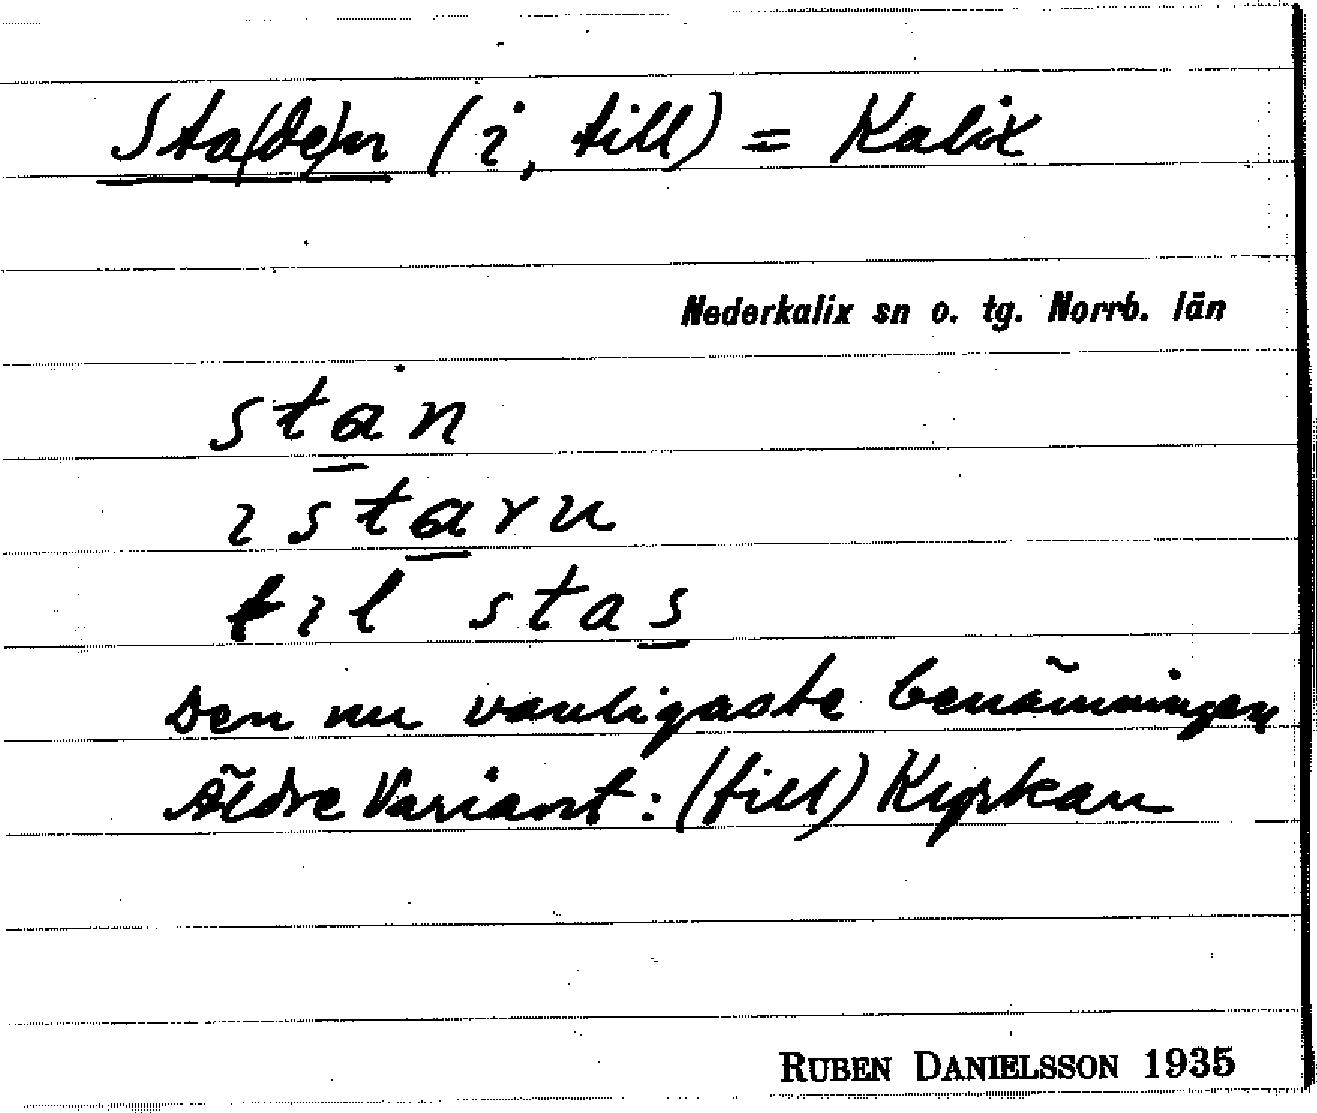 Sta(de)n (i, till) = Kalix
Nederkalix sn o. tg. Norrb. län
stan
ı staru
tıl stas
Den nu vanligaste benämningen
Äldre Variant: (till) Kyrkan
RUBEN DANIELSSON 1935